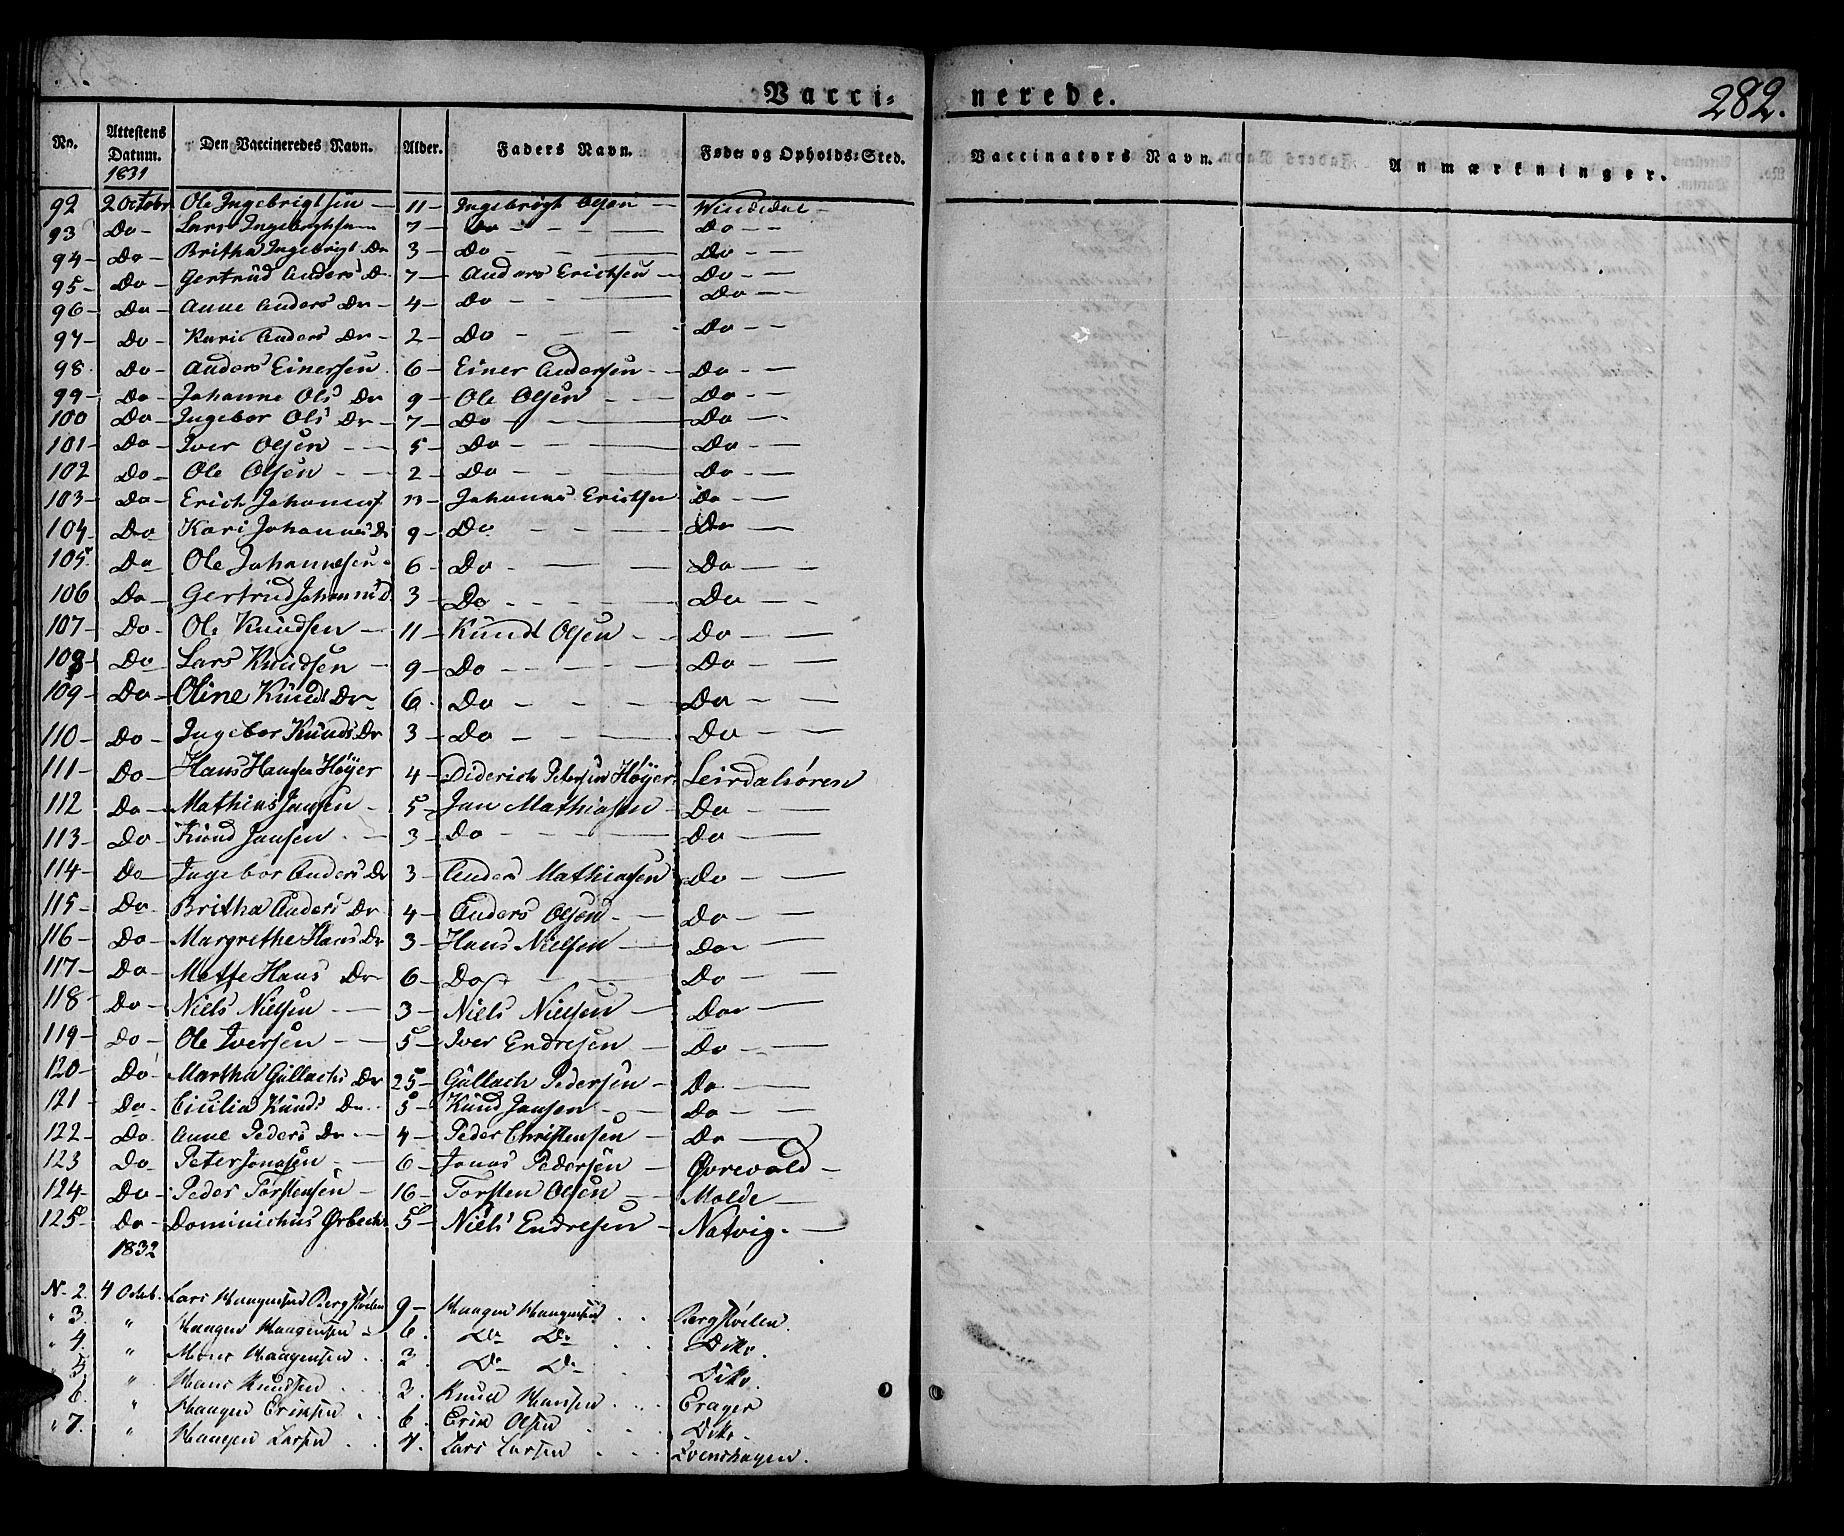 Vacci-nerede.
282.
No. Attestens Datum. Den Vaccineredes Navn. Alder. Faders Navn. Føde- og Opholds-Sted. Vaccinators Navn. Anmærkninger.
1831
92 2 Octobr Ole Ingebrigtsen — 11 — Ingebrigt Olsen — Vindedal —
93 Do — Lars Ingebrigtsen 7 — Do — Do —
94 — Do — Britha Ingebrigt Dr 3 — Do — Do —
95 — Do — Gertrud Anders D. 7 — Anders Erichsen — Do —
96 — Do — Anne Anders Dr — 4 — Do — Do —
97 — Do — Kari Anders Dr — 2 — Do — Do —
98 Do — Anders Einersen 6 — Einer Andersen — Do —
99 — Do — Johanne Ols Dr 9 — Ole Olsen — Do —
100 Do — Ingebor Ols Dr — 7 — Do — Do —
101 — Do — Iver Olsen — 5 — Do — Do —
102 Do — Ole Olsen — 2 — Do — Do —
103 — Do — Erich Johannes. 13 — Johannes Erichsen Do —
104 — Do — Kari Johannes D 9 — Do — Do —
105 Do — Ole Johannesen — 6 — Do — Do —
106 Do — Gertrud Johannis d 3 — Do — Do —
107 — Do — Ole Knudsen — 11 — Knud Olsen — Do —
108 Do — Lars Knudsen — 9 — Do — Do —
109 — Do — Oline Knuds Dr — 6 . Do — Do —
110 — Do — Ingebor Knuds Dr 3 — Do — Do —
111 — Do — Hans Hansen Høyer 4 — Diderich Petersen Høyer Leirdalsøren
112 Do — Mathias Jansen — 5 — Jan Mathiasen — Do —
113 — Do — Knud Jansen — 3 — Do — Do —
114 — Do — Ingebor Anders Dr 3 — Anders Mathiasen Do —
115 — Do — Britha Anders Dr 4 — Anders Olsen — Do —
116 — Do — Margrethe Hans Dr 3 — Hans Nielsen — Do —
117 — Do — Mette Hans Dr 6 — Do — Do —
118 — Do — Niels Nielsen — 3 — Niels Nielsen — Do —
119 — Do — Ole Iversen — 5 — Iver Endresen — Do —
120 — Do — Martha Gullachs Dr 25 — Gullach Pedersen — Do —
121 — Do — Cicilia Knuds Dr. 5 — Knud Jansen — Do —
122 — Do — Anne Peders Dr — 4 — Peder Christensen — Do —
123 Do — Peter Jonasen — 6 — Jonas Pedersen — Øvrevold —
124 — Do — Peder Torstensen — 16 — Torsten Olsen — Molde —
125 Do — Dominichus Ørbech 5 — Niels Endresen — Natvig. —
1832
N. 2. 4 Octob. Lars Haagensen Bergqvilen 9 — Haagen Haagensen . . Bergqvilen.
" 3. " Haagen Haagensen — 6. Do Do . . Dito.
" 4. " Haagensen . . 2. Do Do . . Dito.
" 5. " Hans Knudsen . . 3. Knud Hansen . . Erager
" 6. " Haagen Eriksen . . 6. Erik Olsen . . Dito.
" 7. " Haagen Larsen . . 7. Lars Larsen . . Svenshagen.